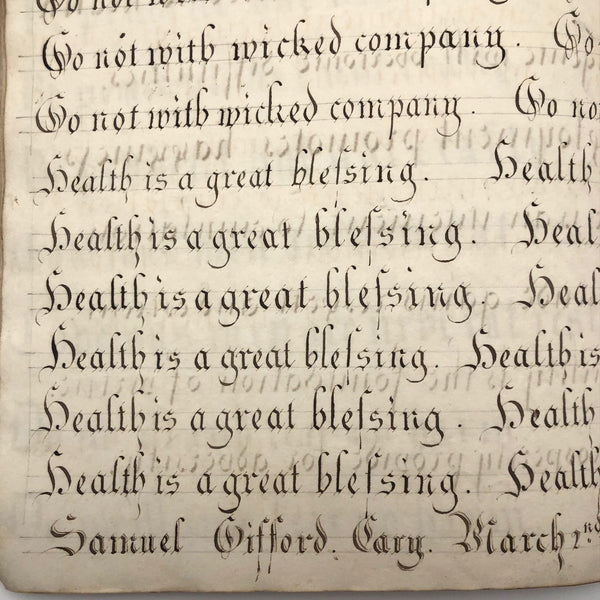 Go not with wicked company. Go
Go not with wicked company. Go no
Health is a great bleſsing. Health
Health is a great bleſsing. Heal
Health is a great bleſsing. Heal
Health is a great bleſsing. Health is
Health is a great bleſsing. Health
Health is a great bleſsing. Health
Samuel Gifford. Cary. March 2nd